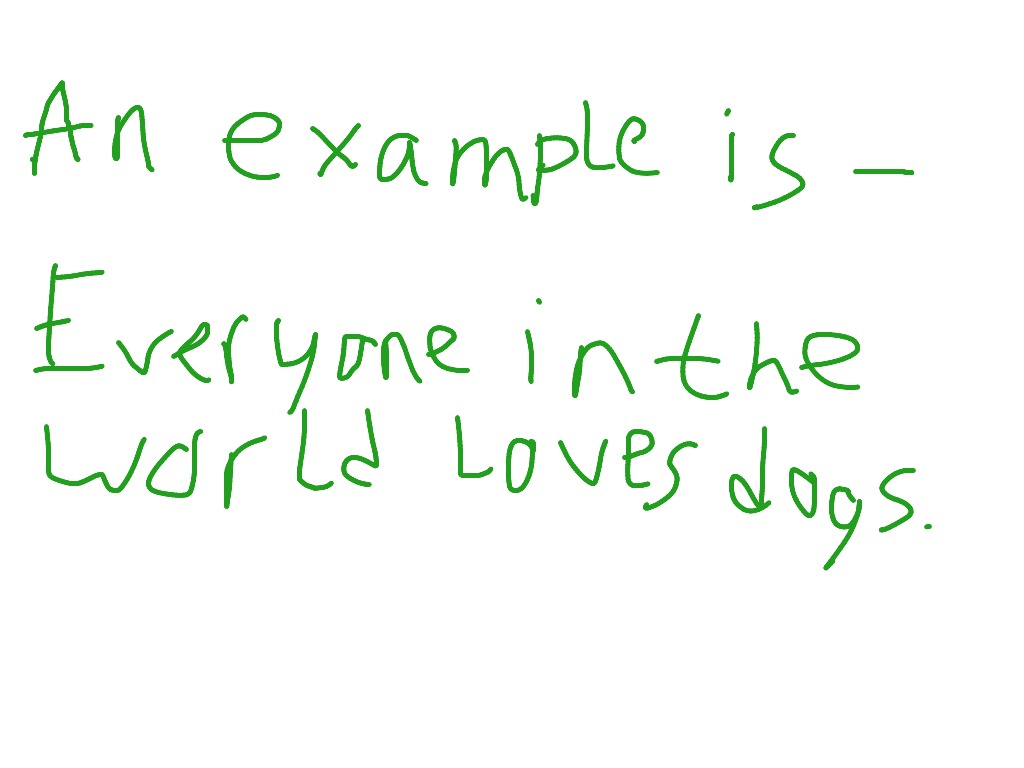 An example is –
Everyone in the
world loves dogs.